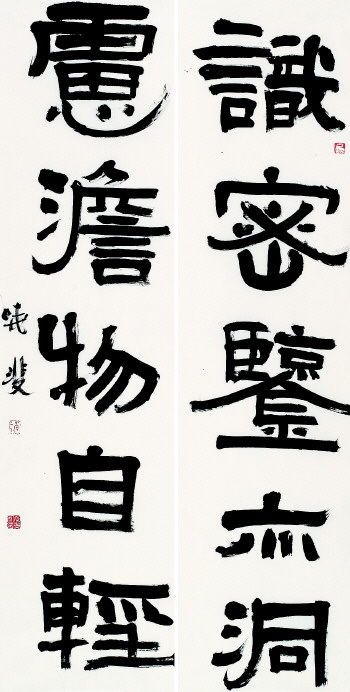 識密鑒亦洞
慮澹物自輕